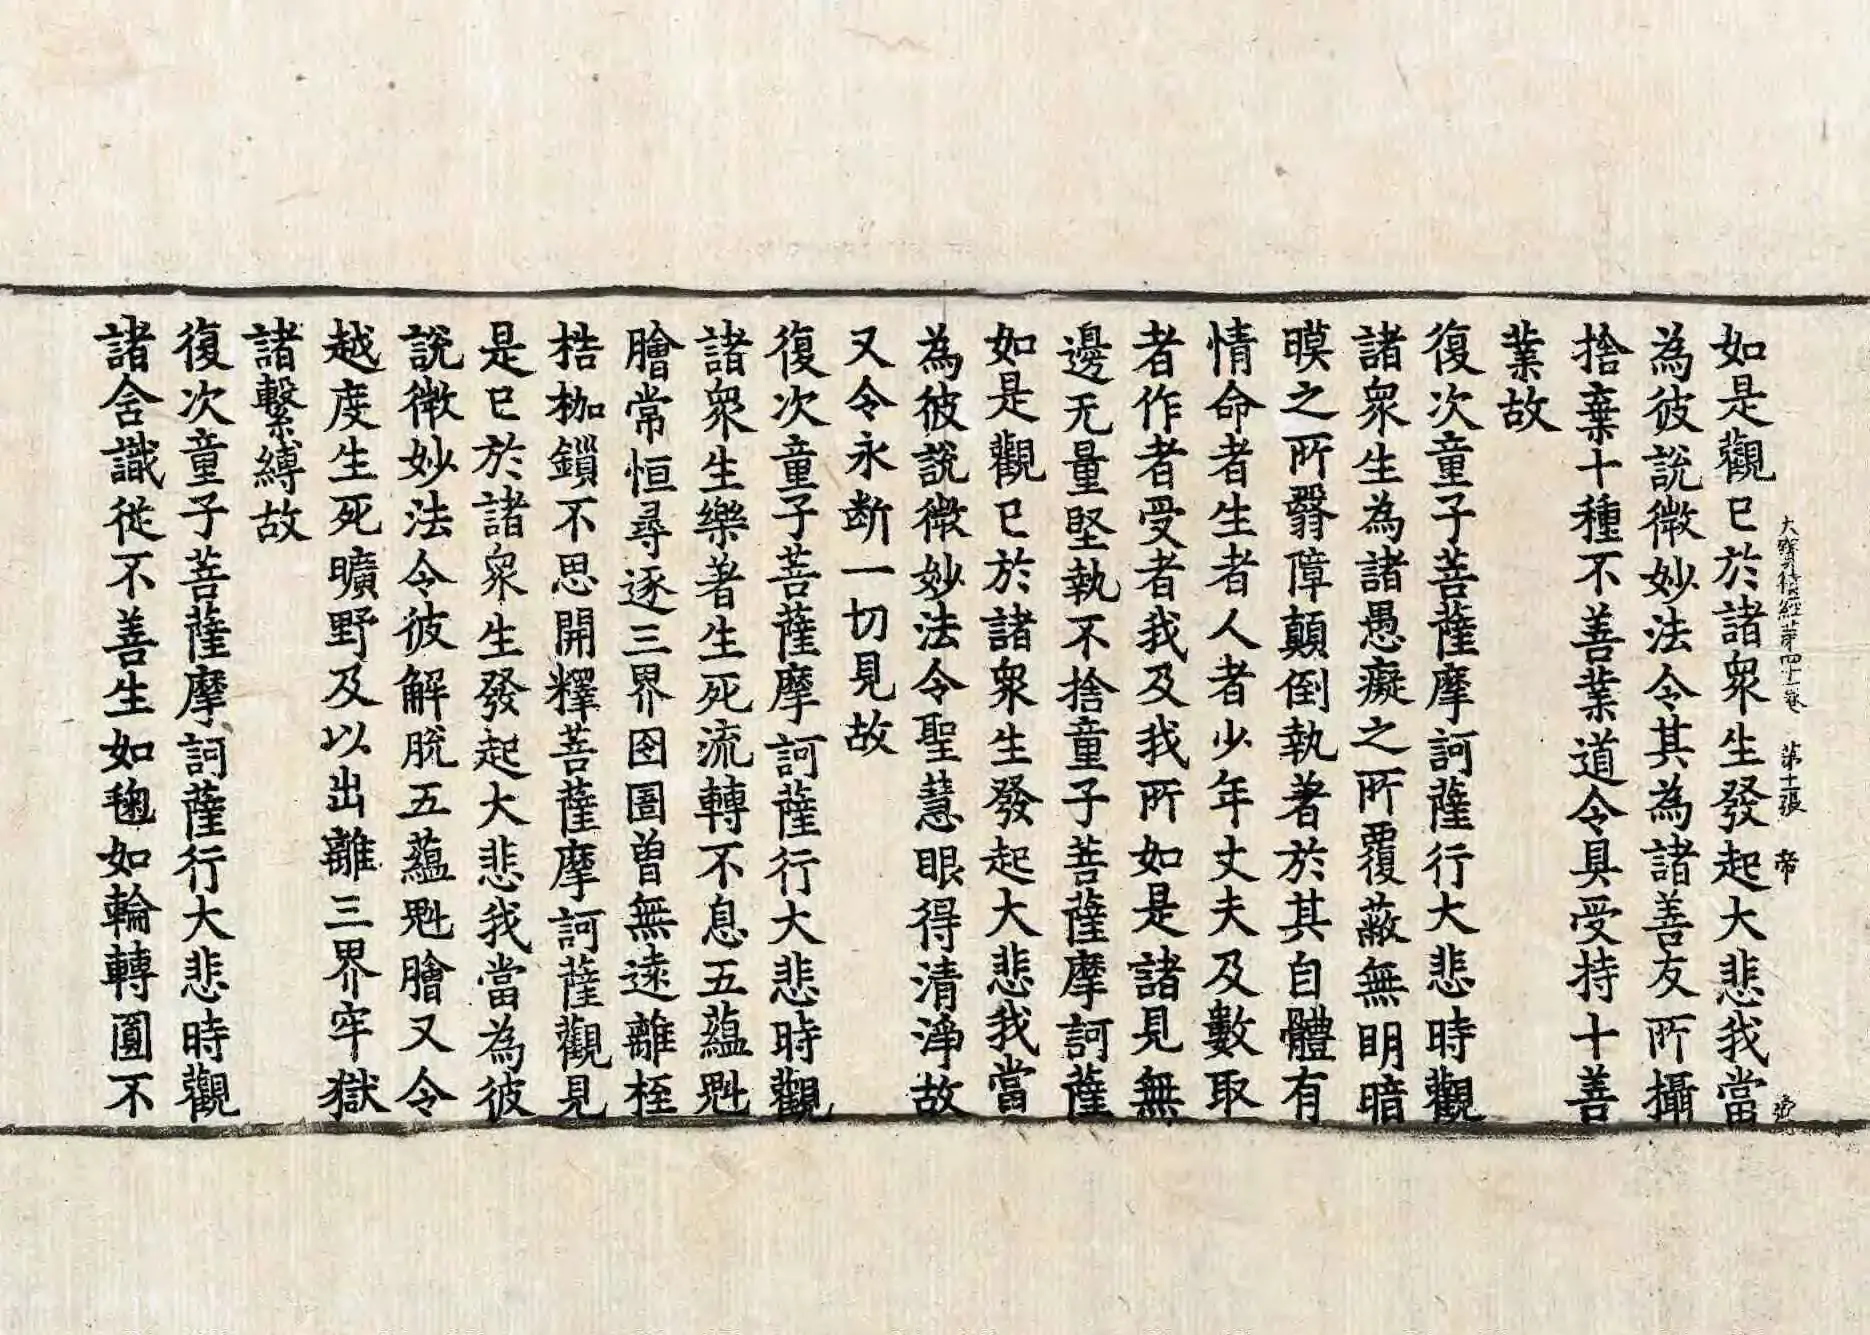 大寶積經第四十一卷　第十一張　帝
如是觀已於諸衆生發起大悲我當
為彼說微妙法令其為諸善友所攝
捨棄十種不善業道令具受持十善
業故
復次童子菩薩摩訶薩行大悲時觀
諸衆生為諸愚癡之所覆蔽無明暗
瞙之所翳障顛倒執著於其自體有
情命者生者人者少年丈夫及數取
者作者受者我及我所如是諸見無
邊无量堅執不捨童子菩薩摩訶薩
如是觀已於諸衆生發起大悲我當
為彼說微妙法令聖慧眼得清淨故
又令永断一切見故
復次童子菩薩摩訶薩行大悲時觀
諸衆生樂著生死流轉不息五蘊魁
膾常恒尋逐三界囹圄曾無遠離桎
梏枷鎖不思開釋菩薩摩訶薩觀見
是已於諸衆生發起大悲我當為彼
說微妙法令彼解脫五蘊魁膾又令
越度生死曠野及以出離三界牢獄
諸繫縛故
復次童子菩薩摩訶薩行大悲時觀
諸含識從不善生如毱如輪轉圓不